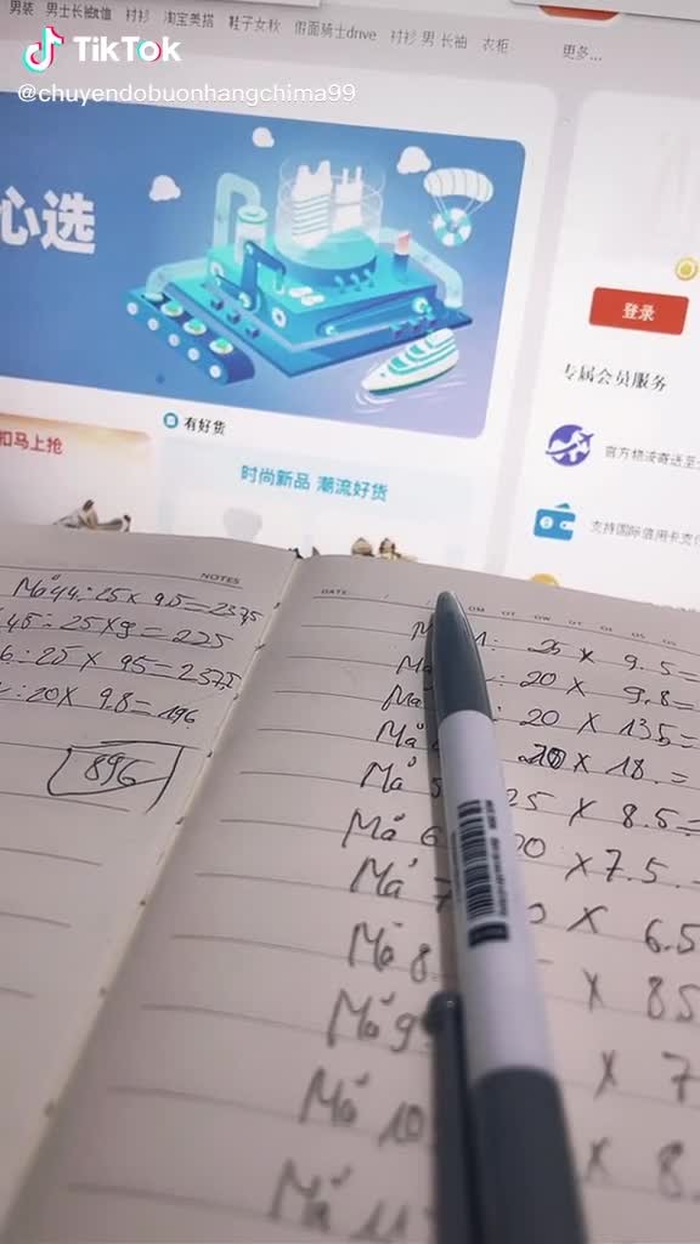 男装 男士长袖t恤 衬衫 淘宝美搭 鞋子女秋 假面骑士drive 衬衫 男 长袖 衣柜 更多...
TikTok
@chuyendobuonhangchima99
心选
登录
专属会员服务
官方物流寄送至
支持国际信用卡支付
扣马上抢
有好货
时尚新品 潮流好货
NOTES
Mã 44: 25 x 9.5 = 237,5
45: 25 x 9 = 225
6: 25 x 95 = 237,5
: 20 x 9.8 = 196
896
DATE
1: 25 x 9.5 =
Mã : 20 x 9.8 =
Mã : 20 x 135 =
Mã x 18 =
Mã 5 25 x 8.5 =
Mã 6 x 7.5
Mã 7 x 6.5
Mã 8 x 85
Mã 9 x 7
Mã 10 x 8
Mã 11